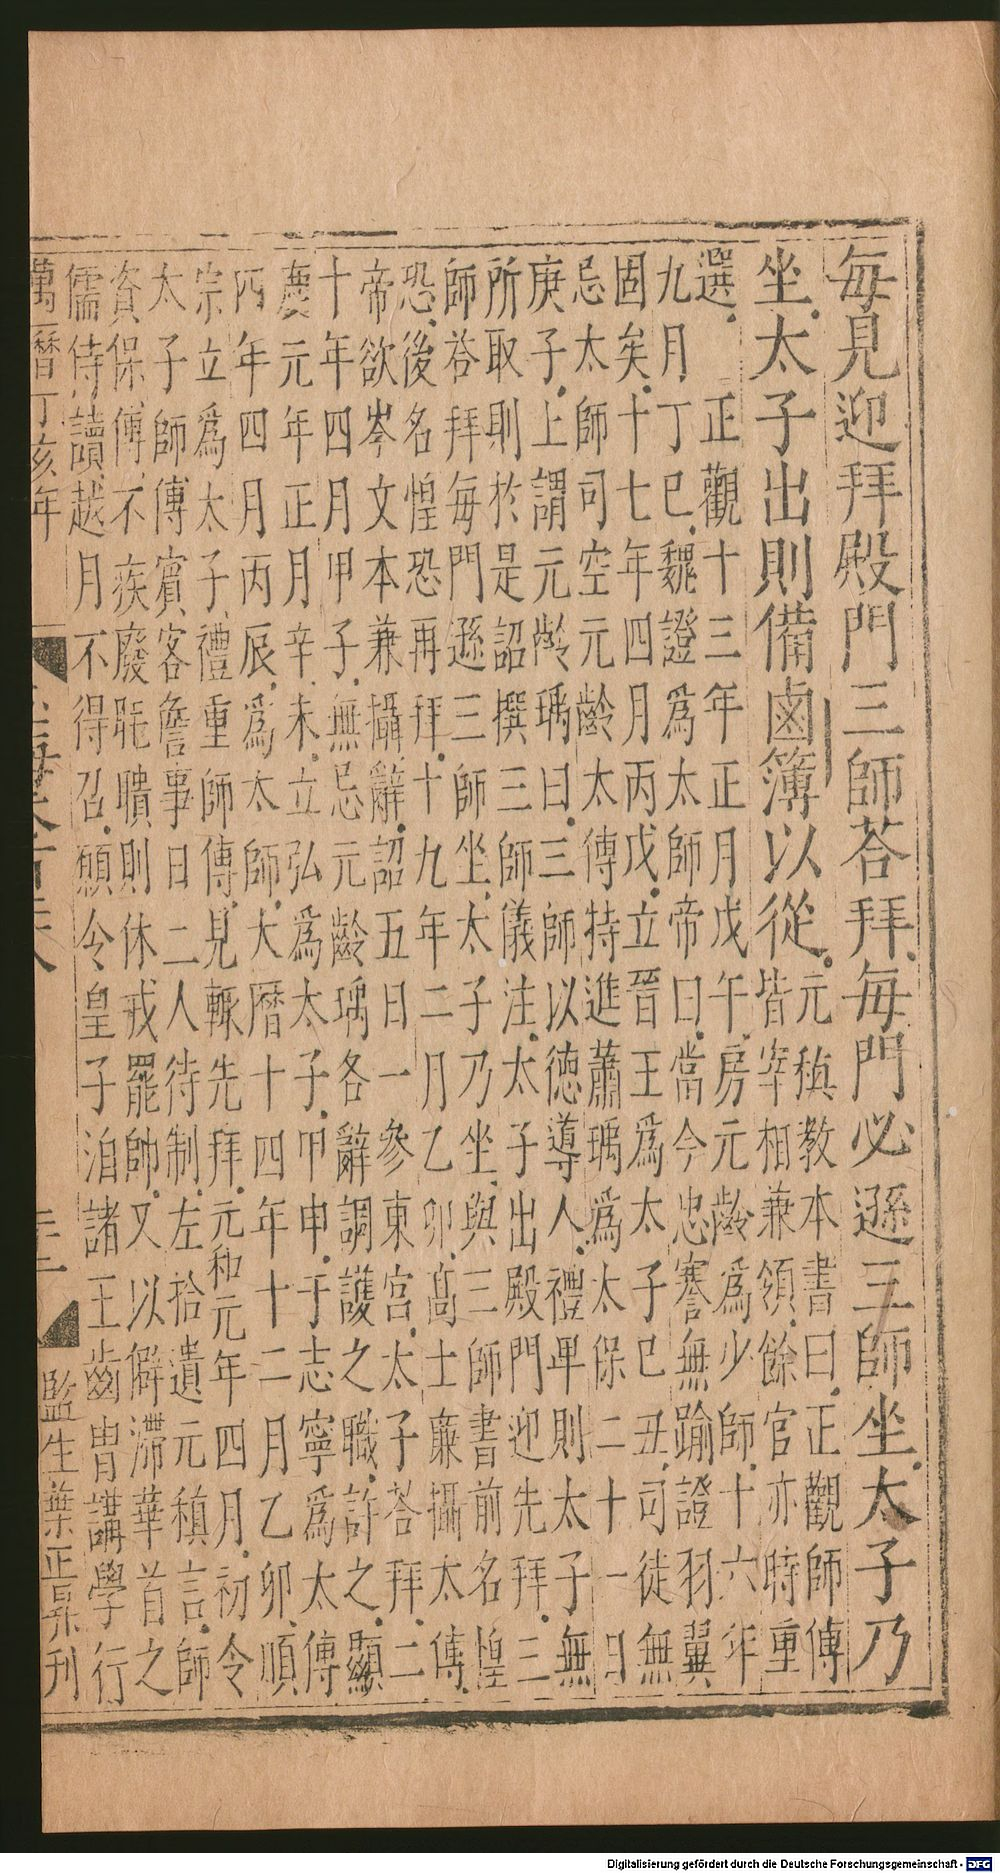 每見迎拜殿門三師荅拜每門必遜三師坐太子乃
坐太子出則備鹵簿以從元稹教本書曰正觀師傅
皆宰相兼領餘官亦時重
選正觀十三年正月戊午房元齡爲少師十六年
九月丁巳魏證爲太師帝曰當今忠謇無踰證羽翼
固矣十七年四月丙戌立晉王爲太子己丑司徒無
忌太師司空元齡太傅特進蕭瑀爲太保二十一日
庚子上謂元齡瑀曰三師以德導人禮畢則太子無
所取則於是詔撰三師儀注太子出殿門迎先拜三
師荅拜每門遜三師坐太子乃坐與三師書前名惶
恐後名惶恐再拜十九年二月乙卯高士廉攝太傅
帝欲岑文本兼攝辭詔五日一參東宮太子荅拜二
十年四月甲子無忌元齡瑀各辭調護之職許之顯
慶元年正月辛未立弘爲太子甲申于志寧爲太傅
四年四月丙辰爲太師大曆十四年十二月乙卯順
宗立爲太子禮重師傅見輒先拜元和元年四月初令
太子師傅賓客詹事日二人待制左拾遺元稹言師
資保傅不疾廢眊聵則休戎罷帥又以僻滯華首之
儒侍讀越月不得召願令皇子洎諸王齒胄講學行
萬曆丁亥年
監生葉正昇刊
Digitalisierung gefördert durch die Deutsche Forschungsgemeinschaft - DFG